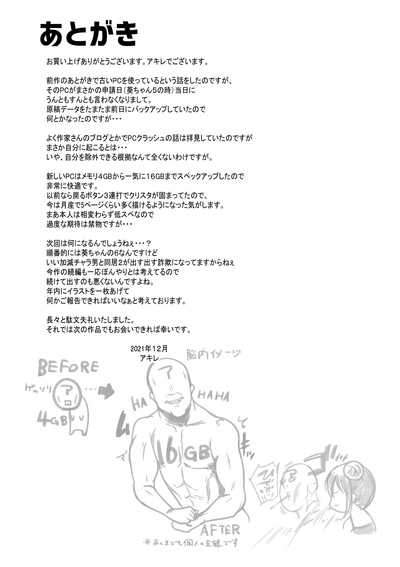 あとがき
お買い上げありがとうございます。アキレでございます。
前作のあとがきで古いPCを使っているという話をしたのですが、
そのPCがまさかの申請日(葵ちゃん5の時)当日に
うんともすんとも言わなくなりまして。
原稿データをたまたま前日にバックアップしていたので
何とかなったのですが・・・
よく作家さんのブログとかでPCクラッシュの話は拝見していたのですが
まさか自分に起こるとは・・・
いや、自分を除外できる根拠なんて全くないわけですが。
新しいPCはメモリ4GBから一気に16GBまでスペックアップしたので
非常に快適です。
以前なら戻るボタン3連打でクリスタが固まってたので。
今は月産で5ページくらい多く描けるようになった気がします。
まあ本人は相変わらず低スペなので
過度な期待は禁物ですが・・・
次回は何になるんでしょうねぇ・・・?
順番的には葵ちゃんの6なんですけど
いい加減チャラ男と同居2が出す出す詐欺になってますからねぇ
今作の続編も一応ぼんやりとは考えてるので
続けて出すのも悪くないんですよね。
年内にイラストを一枚あげて
何かご報告できればいいなぁと考えております。
長々と駄文失礼いたしました。
それでは次の作品でもお会いできれば幸いです。
2021年12月
アキレ
脳内イメージ
BEFORE
ゲッソリ
4GB
?
HA
HAHA
16GB
AFTER
※あくまでも個人の主観です